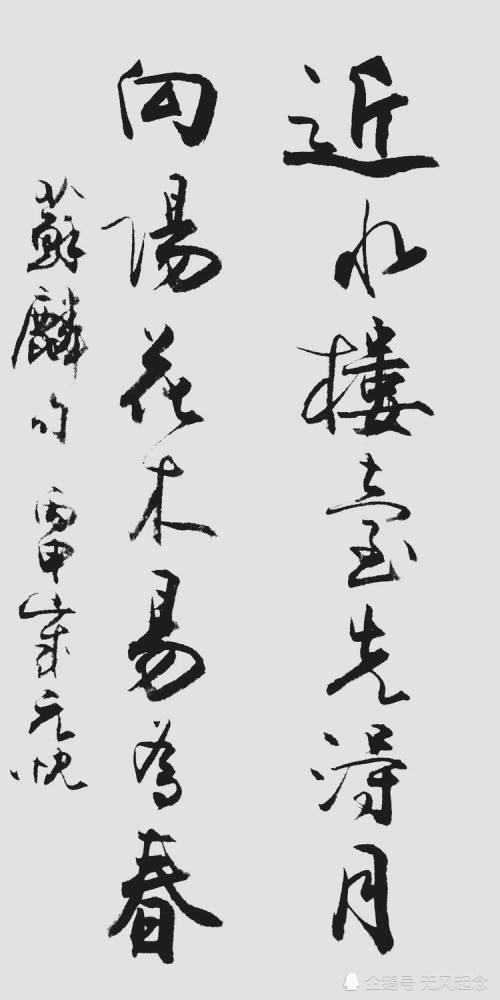 近水楼臺先得月
向陽花木易為春
蘇麟句 丙申歲 元忱
企鹅号 无风起念